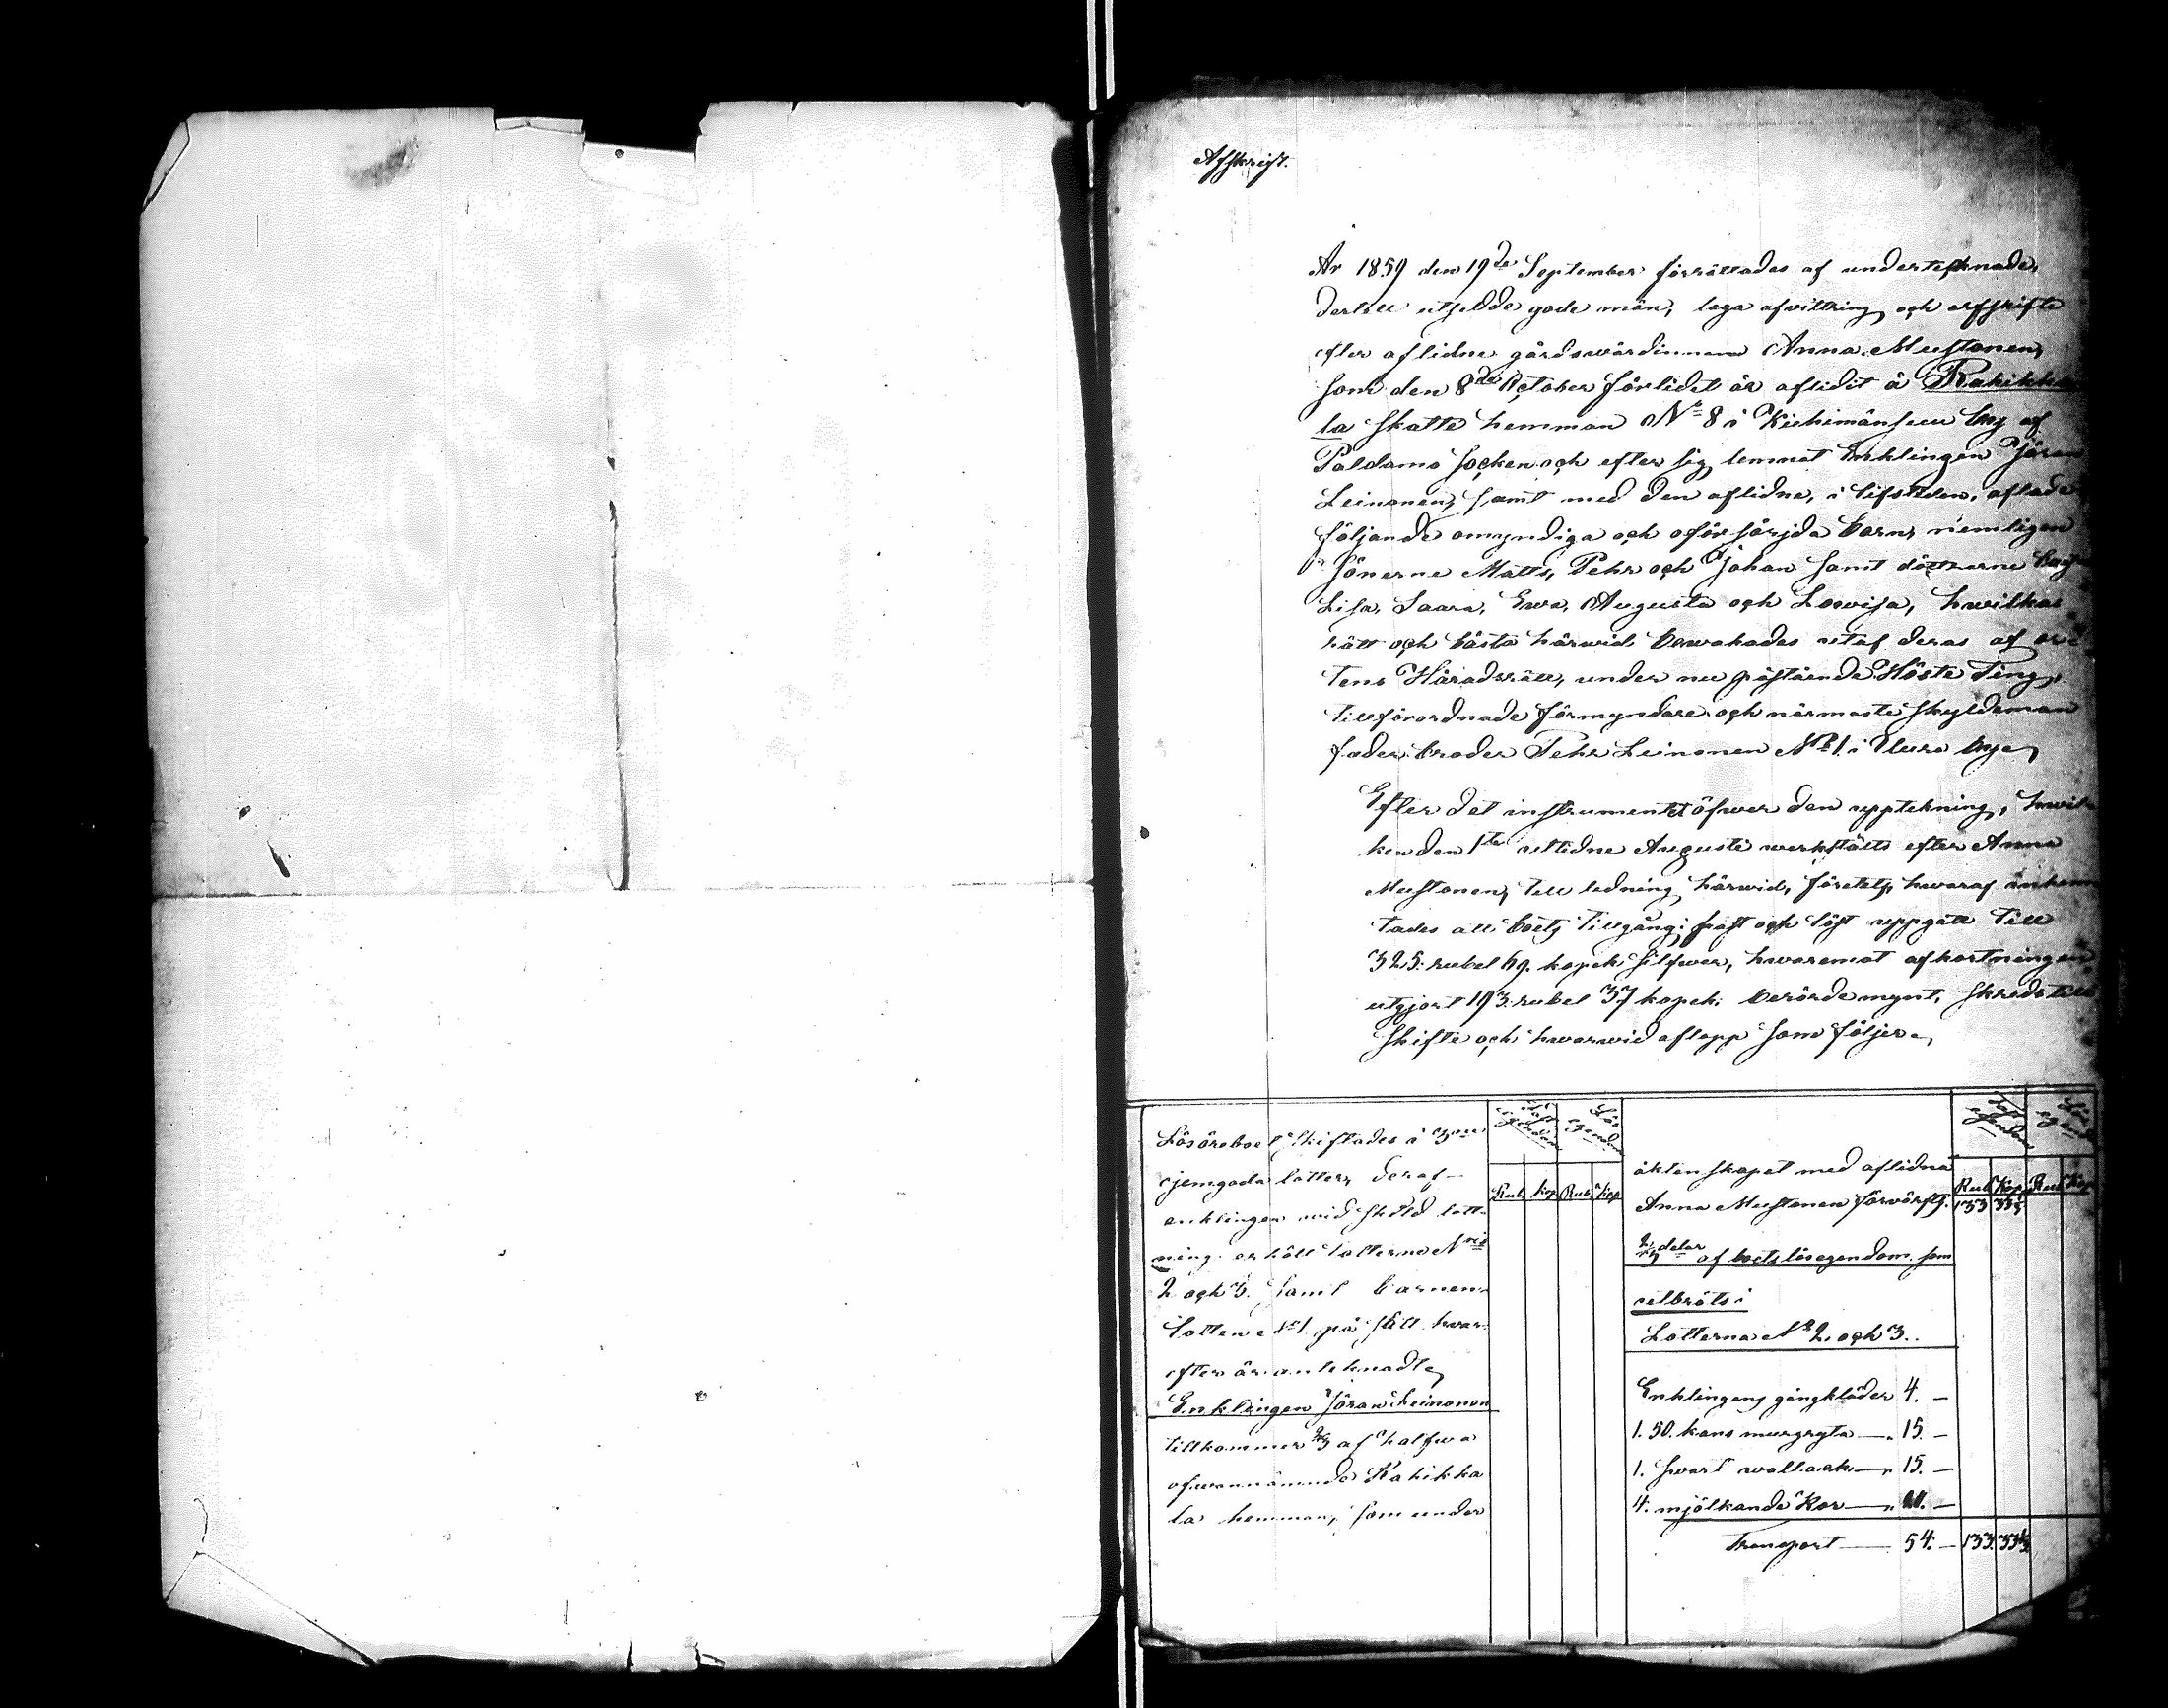 Afskrift.
År 1859 den 19de September förrättades af undertecknade,
dertill utsedde gode män, laga afvittring och arfskifte
efter aflidne gårdswärdinnan Anna Mustonen,
som den 8de October förlidet år aflidit å Rahikka
la Skatte hemman No 8 i Kiehimänsuu by af
Paldamo Socken och efter sig lemnat Enklingen Jöran
Leinonen, samt med den aflidne, i lifstiden, aflade
följande omyndiga och oförsörjda barn, nemligen
Sönerne Matts, Pehr och Johan samt döttrarne Caisa
Lisa, Saara, Ewa, Augusta och Lowisa, hwilkas
rätt och bästa härwid bewakades utaf deras af or
tens Häradsrätt, under nu påstående Höste Ting,
tillförordnade förmyndare och närmaste skyldeman
fader broder Pehr Leinonen No 1 i Uura by,
Efter det instrumentet öfwer den uppteckning, hwil
ken den 1sta sistledne Augusti werkstälts efter Anna
Mustonen, till ledning härwid, företets, hwaraf inhem
tades att boets tillgång i fast och löst uppgått till
325. rubel 69. kopek silfwer, hwaremot afkortningen
utgjort 193. rubel 37 kopek. berörde mynt, skreds till
Skifte och hwarwid aflopp som följer,
Lösöreboet Skiftades i 3ne
jemgoda lotter, deraf
enklingen wid skedd lott
ning erhöll lotterne Nris
2 och 3. samt barnen
lotten No 1. på sätt hwar
efter är anteknadt,
Enklingen Jöran Leinonen
tillkommer 2/3 af halfwa
ofwannämnde Rahikka
la hemman, som under
Fast egendom
Lös egendom
Rub. Kop. Rub. Kop.
äktenskapet med aflidna
Anna Mustonen förwärfts. 133 33 1/3
2/3 delar af boets lösegendom som
utbröts i
Lotterna No 2. och 3.
Enklingens gångkläder 4. —
1. 50. kans murgryta — 15. —
1. swart wallack — 15. —
4. mjölkande Kor — —
Transport — 54. — 133. 33 1/3
Fast egendom
Lös egendom
Rub. Kop. Rub. Kop.